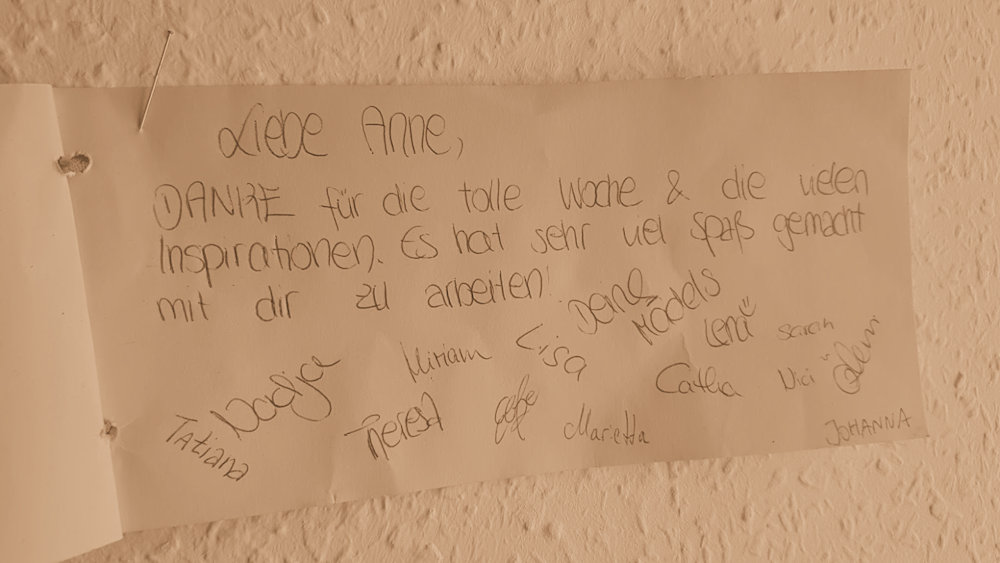 Liebe Anne,
DANKE für die tolle Woche & die vielen
Inspirationen. Es hat sehr viel Spaß gemacht
mit dir zu arbeiten!
Deine
Mädels
Lena
Sarah
Miriam
Lisa
Nadja
Catha
Nici
Tatiana
Theresa
Marietta
JOHANNA